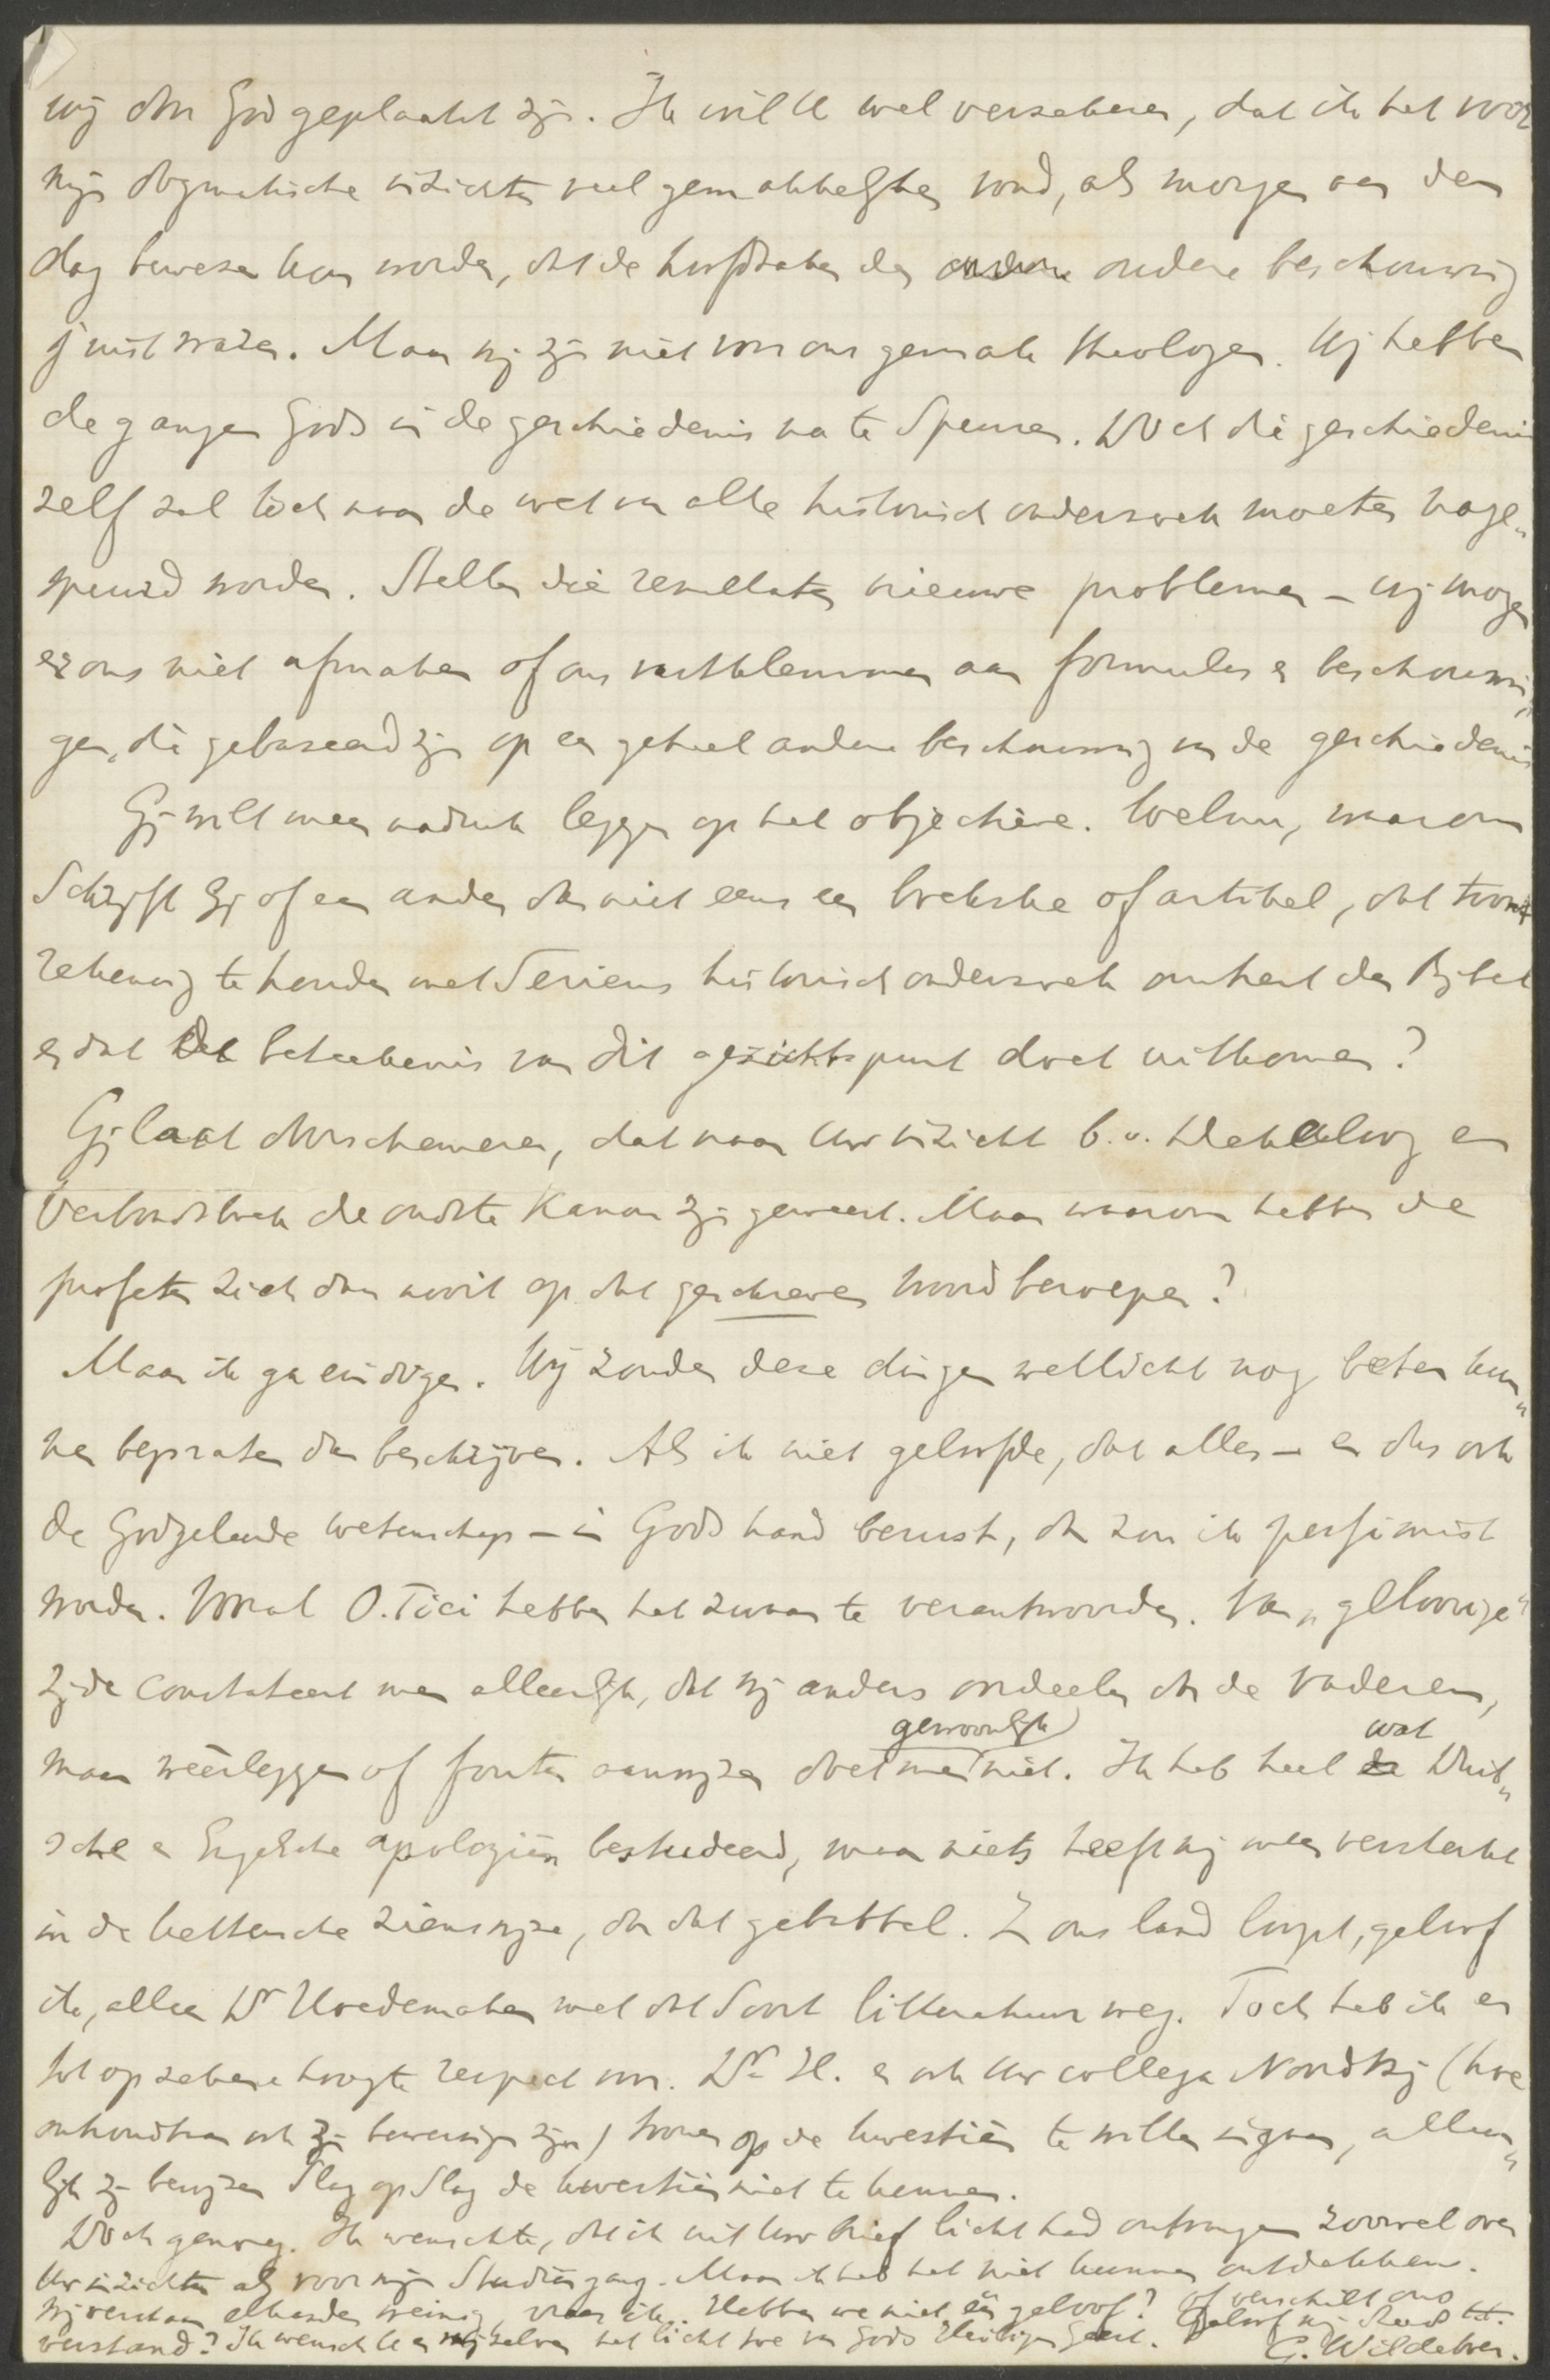 wij door God geplaatst zijn. Ik wil U wel verzekeren, dat ik het voor
mijn dogmatische inzichten veel gemakkelijker vond, als morgen aan den
dag bewezen kon worden, dat de hoofdzaken der oudere beschouwing
juist waren. Maar wij zijn niet voor ons gemak theologen. Wij hebben
de gangen Gods in de geschiedenis na te speuren. Doch die geschiedenis
zelf zal toch naar de wet van alle historisch onderzoek moeten nage„
speurd worden. Stellen die resultaten nieuwe problemen – wij mogen
er ons niet afmaken of ons vastklemmen aan formules en beschouwin„
gen, die gebaseerd zijn op een geheel andere beschouwing van de geschiedenis
Gij wilt meer nadruk leggen op het objectieve. Welnu, waarom
Schrijft Gij of een ander dan niet eens een boekske of artikel, dat toont
rekening te houden met Serieus historisch onderzoek omtrent den Bijbel
en dat de beteekenis van dit gezichtspunt doet uitkomen?
Gij laat doorschemeren, dat naar Uw inzicht b.v. Dekaloog en
Verbondsboek de oudste Kanon zijn geweest. Maar waarom hebben de
profeten zich dan nooit op dat geschreven woord beroepen?
Maar ik ga eindigen. Wij zouden deze dingen wellicht nog beter kun„
nen bepraten dan beschrijven. Als ik niet geloofde, dat alles – en dus ook
de Godgeleerde wetenschap – in Gods hand berust, dan zou ik pessimist
worden. Vooral O.Tici hebben het zwaar te verantwoorden. Van „geloovige"
zijde constateert men alleenlijk, dat wij anders oordeelen dan de vaderen,
maar weêrleggen of fouten aanwijzen doet men gewoonlijk niet. Ik heb heel wat Duit„
sche en Engelsche apologiën bestudeerd, maar niets heeft mij meer versterkt
in de kettersche zienswijze, dan dat gebabbel. In ons land loopt, geloof
ik, alleen Dr Hoedemaker met dat Soort litteratuur weg. Toch heb ik er
tot op zekere hoogte respect voor. Dr H. en ook Uw collega Noordtzij (hoe
onhoudbaar ook zijn beweringen zijn) toonen op de kwestiën te willen ingaan, alleen„
lijk zij bewijzen Slag op Slag de kwestiën niet te kennen.
Doch genoeg. Ik wenschte, dat ik uit Uw brief licht had ontvangen zoowel over
Uw inzichten als voor mijn Studiëngang. Maar ik heb het niet kunnen ontdekken.
Wij verstaan elkander weinig, vrees ik. Hebben we niet één geloof? of verschilt ons
verstand? Ik wensch U en mijzelven het licht toe van Gods Heiligen Geest. Geloof mij steeds t.t.
G. Wildeboer.